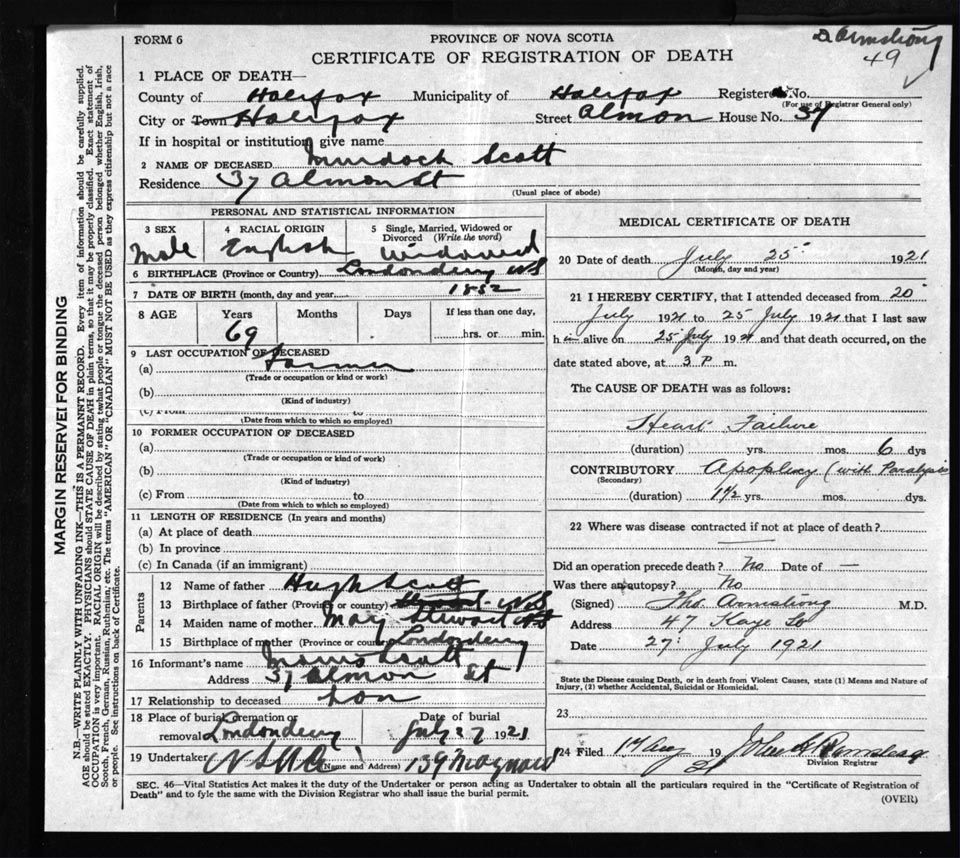 D. Armstrong
49
FORM 6
PROVINCE OF NOVA SCOTIA
CERTIFICATE OF REGISTRATION OF DEATH
1 PLACE OF DEATH—
County of Halifax Municipality of Halifax Registered No.
(For use of Registrar General only)
City or Town Halifax Street Almon House No. 37
If in hospital or institution, give name
2 NAME OF DECEASED Murdoch Scott
Residence 37 Almon St
(Usual place of abode)
PERSONAL AND STATISTICAL INFORMATION
3 SEX 4 RACIAL ORIGIN 5 Single, Married, Widowed or Divorced (Write the word)
Male English Widowed
6 BIRTHPLACE (Province or Country) Londonderry NS
7 DATE OF BIRTH (month, day and year) 1852
8 AGE Years Months Days If less than one day,
69 hrs. or min.
9 LAST OCCUPATION OF DECEASED
(a) Farmer
(Trade or occupation or kind of work)
(b)
(Kind of industry)
(c) From to
(Date from which to which so employed)
10 FORMER OCCUPATION OF DECEASED
(a)
(Trade or occupation or kind of work)
(b)
(Kind of industry)
(c) From to
(Date from which to which so employed)
11 LENGTH OF RESIDENCE (In years and months)
(a) At place of death
(b) In province
(c) In Canada (if an immigrant)
Parents
12 Name of father Hugh Scott
13 Birthplace of father (Province or country) NS
14 Maiden name of mother Mary Stewart NS
15 Birthplace of mother (Province or country) Londonderry
16 Informant's name Scott
Address 37 Almon St
17 Relationship to deceased Son
18 Place of burial, cremation or removal Londonderry Date of burial July 27 1921
19 Undertaker (Name and Address) 139 Maynard
MEDICAL CERTIFICATE OF DEATH
20 Date of death July 25 1921
(Month, day and year)
21 I HEREBY CERTIFY, that I attended deceased from 20
July 1921 to 25 July 1921 that I last saw
him alive on 25 July 1921 and that death occurred, on the
date stated above, at 3 P m.
The CAUSE OF DEATH was as follows:
Heart Failure
(duration) yrs. mos. 6 dys
CONTRIBUTORY Apoplexy (with Paralysis
(Secondary)
(duration) 1 1/2 yrs. mos. dys.
22 Where was disease contracted if not at place of death?
Did an operation precede death? No Date of —
Was there an autopsy? No
(Signed) Tho. Armstrong M.D.
Address 47 Kaye St
Date 27 July 1921
State the Disease causing Death, or in death from Violent Causes, state (1) Means and Nature of
Injury, (2) whether Accidental, Suicidal or Homicidal.
23
24 Filed 1st Aug 1921
Division Registrar
SEC. 46—Vital Statistics Act makes it the duty of the Undertaker or person acting as Undertaker to obtain all the particulars required in the "Certificate of Registration of
Death" and to fyle the same with the Division Registrar who shall issue the burial permit.
(OVER)
MARGIN RESERVEI FOR BINDING
N.B.—WRITE PLAINLY WITH UNFADING INK—THIS IS A PERMANNT RECORD. Every item of information should be carefully supplied.
AGE should be stated EXACTLY. PHYSICIANS should STATE CAUSE OF DEATH in plain terms, so that it may be properly classified. Exact statement of
OCCUPATION is very important. RACIAL ORIGIN will be described by stating twhat people or tongue the deceased person belonged whether English, Irish,
Scotch, French, German, Russian, Ruthenian, etc. The terms "AMERICAN" OR "CNADIAN" MUST NOT BE USED as they express citizenship but not a race
or people. See instructions on back of Certificate.